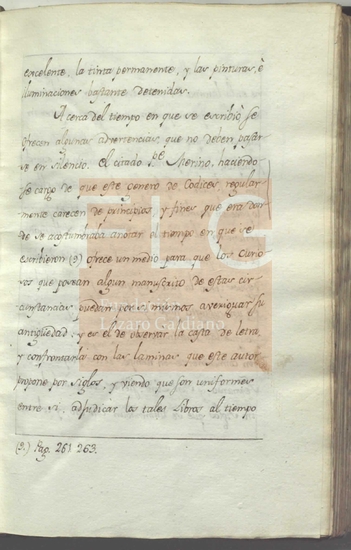 excelente, la tinta permanente, y las pinturas, è
iluminaciones bastante detenidas.
Acerca del tiempo en que se escribiò se
ofrecen algunas advertencias, que no deben pasar
se en silencio. El citado Pe. Merino, haciendo
se cargo de que este genero de Codices, regular
mente carecen de principios, y fines que era don
de se acostumbraba anotar el tiempo en que se
escribieron (3) ofrece un medio para que los curio
sos que posean algun manuscrito de estas cir
cunstancias, puedan por si mismos averiguar su
antigüedad; y es el de observar la casta de letra,
y confrontarla con las laminas que este autor
propone por siglos, y viendo que son uniformes
entre si, adjudicar los tales Libros al tiempo
(3.) Pag. 261 263.
FLG
Fundación
Lázaro Galdiano